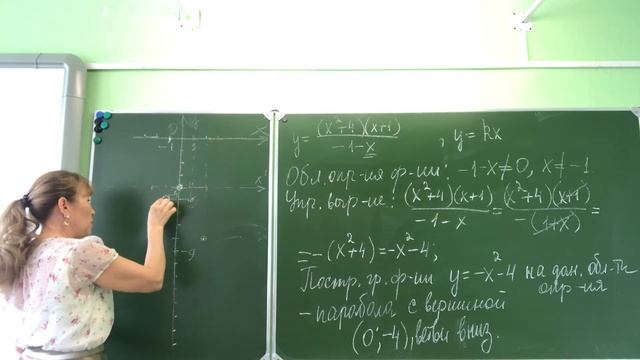 y = (x²+4)(x+1) / -1-x , y = kx
Обл. опр-ия ф-ии: -1-x≠0, x≠-1
Упр. выр-ие: (x²+4)(x+1) / -1-x = (x²+4)(x+1) / -(1+x) =
= -(x²+4) = -x²-4;
Постр. гр. ф-ии y = -x²-4 на дан. обл-ти
опр-ия
- парабола с вершиной
(0; -4), ветви вниз.
0
-1
y
x
x'
-9